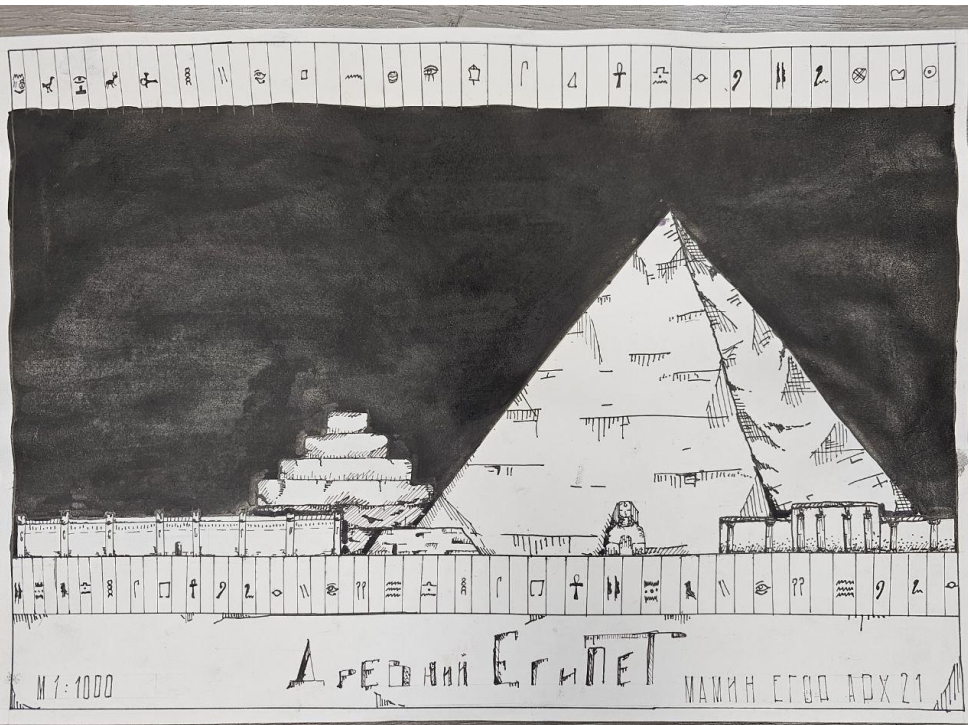 М 1:1000
Древний Египет
МАМИН ЕГОР АРХ 21